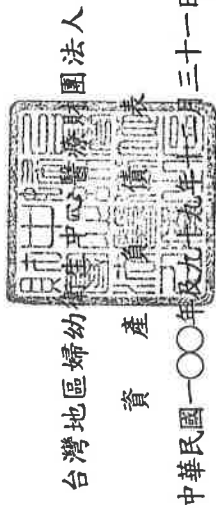 台灣地區婦幼衛生中心醫療財團法人
資產負債表
中華民國一〇〇年及九十九年十二月三十一日